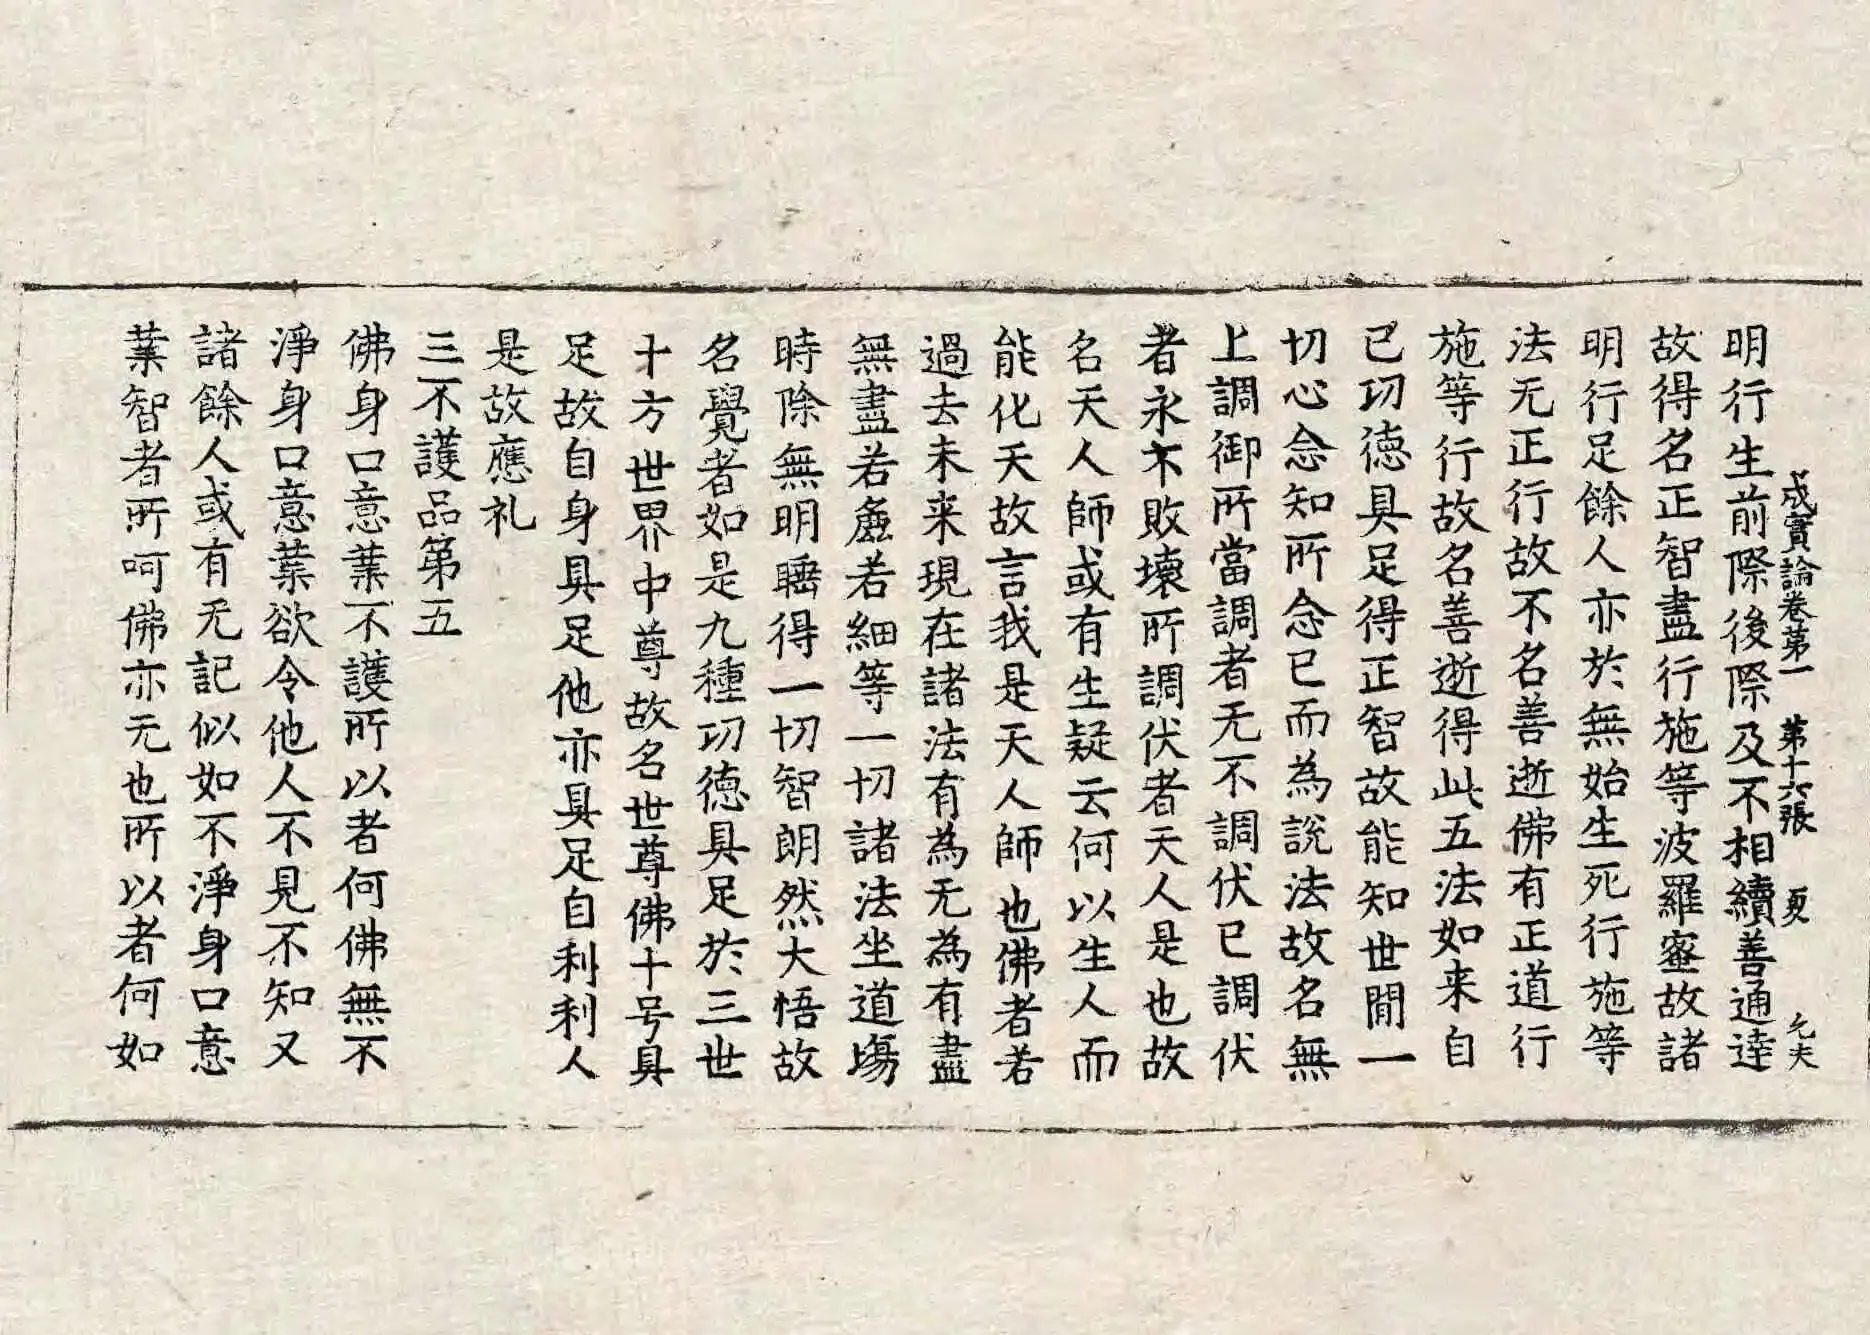 成實論卷苐一　苐十六張　更　允夫
明行生前際後際及不相續善通逹
故得名正智盡行施等波羅蜜故諸
明行足餘人亦於無始生死行施等
法无正行故不名善逝佛有正道行
施等行故名善逝得此五法如来自
已功德具足得正智故能知世閒一
切心念知所念已而為說法故名無
上調御所當調者无不調伏已調伏
者永不敗壞所調伏者天人是也故
名天人師或有生疑云何以生人而
能化天故言我是天人師也佛者若
過去未来現在諸法有為无為有盡
無盡若麁若細等一切諸法坐道塲
時除無明睡得一切智朗然大悟故
名覺者如是九種功德具足於三世
十方世界中尊故名世尊佛十号具
足故自身具足他亦具足自利利人
是故應礼
三不護品苐五
佛身口意業不護所以者何佛無不
淨身口意業欲令他人不見不知又
諸餘人或有无記似如不淨身口意
業智者所呵佛亦无也所以者何如